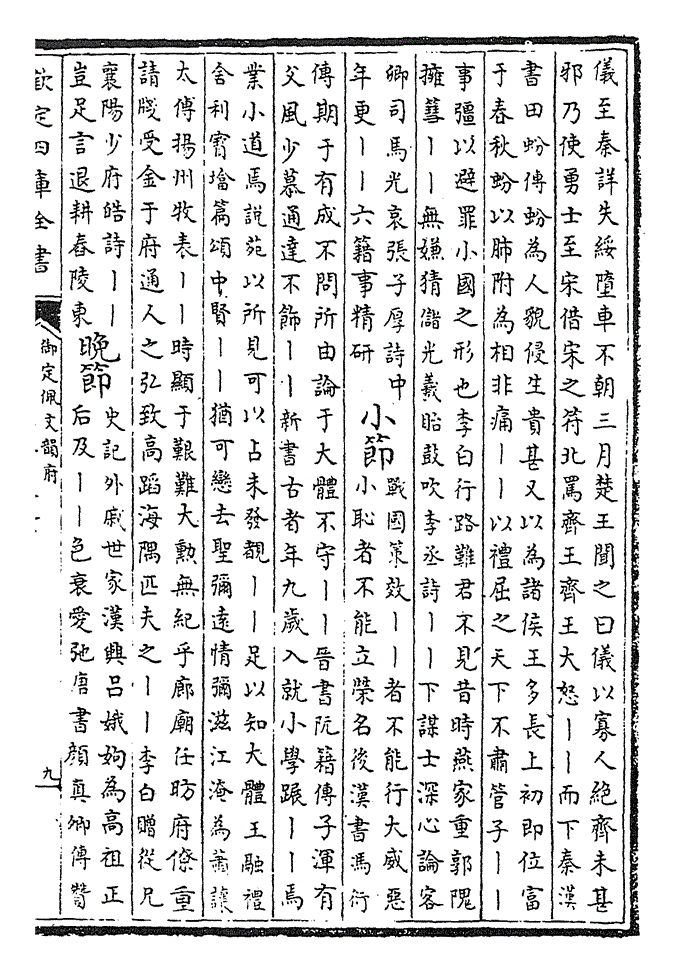 儀至秦詳失綏墮車不朝三月楚王聞之曰儀以寡人絕齊未甚
邪乃使勇士至宋借宋之符北罵齊王齊王大怒丨丨而下秦漢
書田蚡傳蚡為人貌侵生貴甚又以為諸侯王多長上初即位富
于春秋蚡以肺附為相非痛丨丨以禮屈之天下不肅管子丨丨
事彊以避罪小國之形也李白行路難君不見昔時燕家重郭隗
擁篲丨丨無嫌猜儲光羲眙鼓吹李丞詩丨丨下謀士深心論客
卿司馬光哀張子厚詩中
年更丨丨六籍事精研
小節
戰國策效丨丨者不能行大威惡
小恥者不能立榮名後漢書馮衍
傳期于有成不問所由論于大體不守丨丨晉書阮籍傳子渾有
父風少慕通達不飾丨丨新書古者年九歲入就小學蹍丨丨焉
業小道焉說苑以所見可以占未發覩丨丨足以知大體王融禮
舍利寳塔篇頌中賢丨丨猶可戀去聖彌遠情彌滋江淹為蕭讓
太傅揚州牧表丨丨時顯于艱難大勳無紀乎廊廟任昉府僚重
請牋受金于府通人之弘致高蹈海隅匹夫之丨丨李白贈從兄
襄陽少府皓詩丨丨
豈足言退耕舂陵東
晚節
史記外戚世家漢興呂娥姁為高祖正
后及丨丨色衰愛弛唐書顏真卿傳贊
欽定四庫全書
御定佩文韻府
九